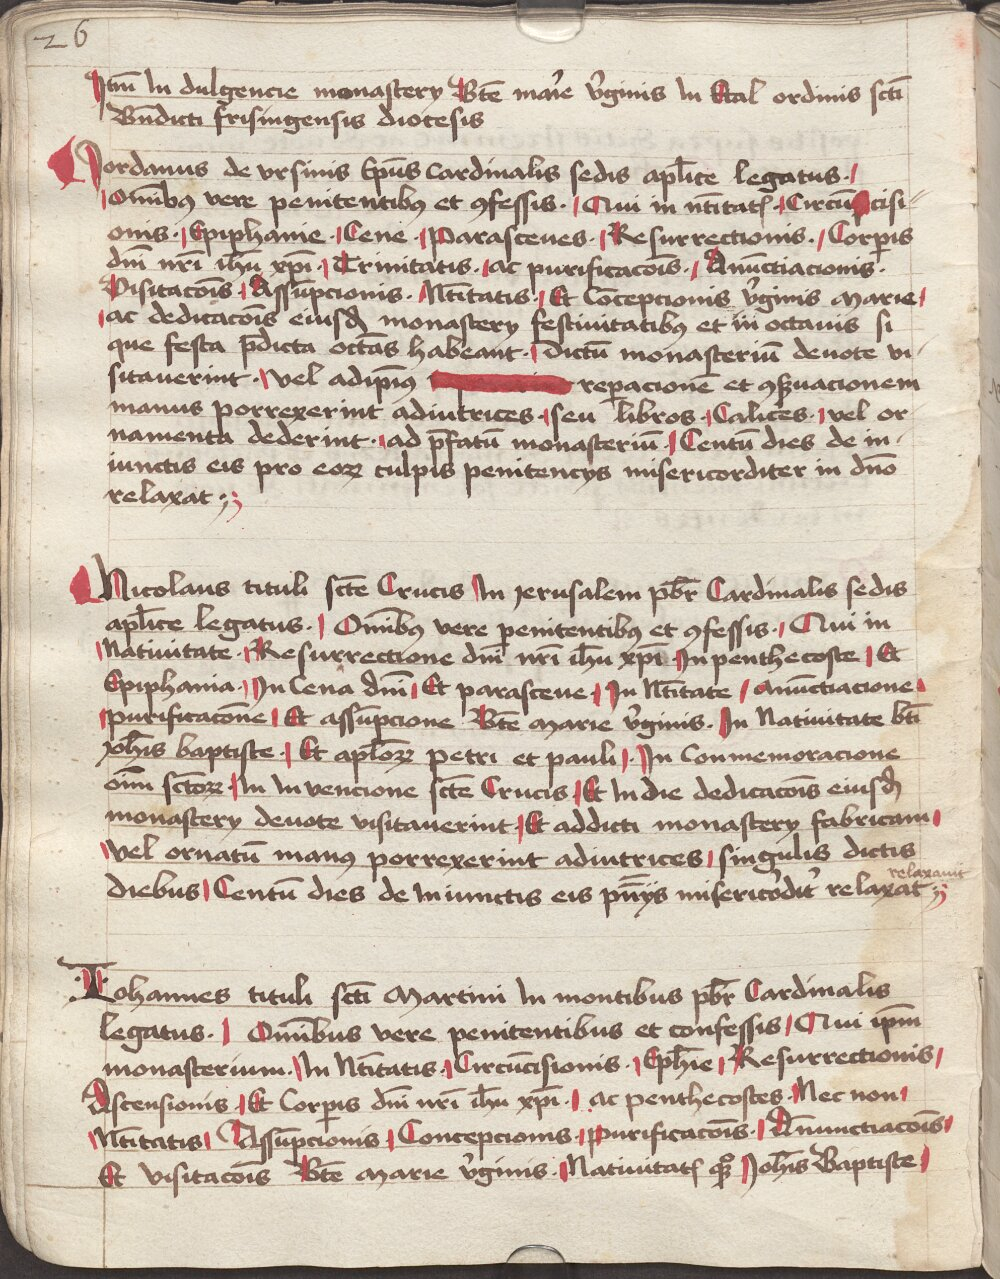 26
Itm̄ In dulgencie monastery Btē marie v̓ginis In Etal ordinis sct̄i
Bn̄dicti frisingensis diocesis
Iordanus de vrsinis Ep̄us Cardinalis sedis apl̄ice legatus.
Om̄ibꝫ vere penitentibꝫ et ꝯfessis. Qui in nt̄itatꝭ. Circūcisi
onis. Epiphanie. Cene. Parasceues. Resurrectionis. Corꝑis
dn̄i nr̄i ih̄u xp̄i. Trinitatis. ac purificacōis. Anūctiacionis.
Visitacōis Assūpcionis. Nt̄itatis. Et Concepcionis v̓ginis Marie
ac dedicacōis eiusd̄ monastery festiuitatibꝫ et in octauis si
que festa p̄dicta octās habeant. Dictū monasteriū deuote vi
sitauerint. Vel adip̄iꝰ reꝑacionē et ꝯẜuacionem
manus porrexerint adiutrices. seu libros. Calices. vel or
namenta dederint. ad p̄fatū monasteriū. Centū dies de in
iunctis eis pro eoꝝ culpis penitencys misericorditer in dn̄o
relaxat
Nicolaus tituli sct̄e Crucis In Jerusalem pb̄r Cardinalis sedis
apl̄ice legatus. Om̄ibꝫ vere penitentibꝫ et ꝯfessis. Qui in
Natiuitate. Resurrectione dn̄i nr̄i ih̄u xp̄i. In penthecoste Et
Epiphania. In Cena dn̄i Et parasceue In Nt̄itate Anūctiacione
purificacōne Et assūpcione Btē Marie v̓ginis. In Natiuitate bt̄i
Joh̄is baptiste. Et apl̄oꝝ petri et pauli. In Conmemoracione
oīm sct̄oꝝ In Invencione sct̄e Crucis Et In die dedicacōis eiusd̄
monastery deuote visitauerint Et addicti monastery fabricam
vel ornatū manꝰ porrexerint adiutrices singulis dictis
relaxauit
diebus Centū dies de Iniunctis eis pn̄ys misericordit̓ relaxat
Iohannes tituli sct̄i Martini In montibus pb̄r Cardinalis
legatus. Om̄ibus vere penitentibus et confessis Qui ip̄m
monasterium. In Nt̄itatis. Circūcisionis. Eph̄ie Resurrectionis
Ascensionis Et Corꝑis dn̄i nr̄i ih̄u xp̄i. ac penthecostes Nec non
Nt̄itatis Assūpcionis Concepcionis purificacōis. Anunctiacōis
Et visitacōis Btē Marie v̓ginis. Natiuitatꝭ qꝫ Joh̄is Baptiste